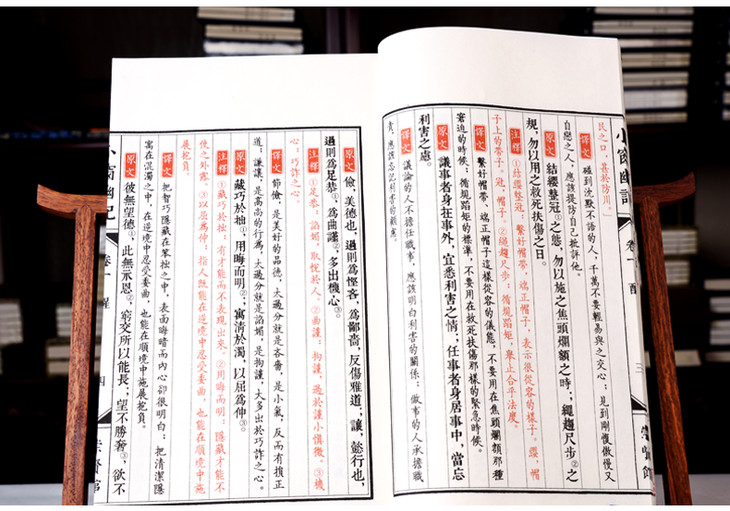 小窗幽記 卷一 醒 三 崇賢館
民之口，甚於防川」
譯文 碰到沈默不語的人，千萬不要輕易與之交心；見到剛愎傲慢又
自戀之人，應該提防自己批評他。
原文 結纓整冠①之態，勿以施之焦頭爛額之時；繩趨尺步②之
規，勿以用之救死扶傷之日。
注釋 ①結纓整冠：繫好帽帶，端正帽子，表示很從容的樣子。纓，帽
子上的帶子。冠，帽子。②繩趨尺步：循規蹈矩，舉止合乎法度。
譯文 繫好帽帶，端正帽子這樣從容的儀態，不要用在焦頭爛額那種
窘迫的時候；循規蹈矩的標準，不要用在救死扶傷那樣的緊急時候。
原文 議事者身在事外，宜悉利害之情；任事者身居事中，當忘
利害之慮。
譯文 議論的人不擔任職事，應該明白利害的關係；做事的人承擔職
責，應該忘記利害的顧慮。
原文 儉，美德也，過則為慳吝，為鄙嗇，反傷雅道；讓，懿行也，
過則為足恭①，為曲謹②，多出機心③。
注釋 ①足恭：諂媚，取悅於人。②曲謹：拘謹，過於謹小慎微。③機
心：巧詐之心。
譯文 節儉，是美好的品德，太過分就是吝嗇，是小氣，反而有損正
道；謙讓，是高尚的行為，太過分就是諂媚，是拘謹，大多出於巧詐之心。
原文 藏巧於拙①，用晦而明②，寓清於濁，以屈為伸③。
注釋 ①藏巧於拙：有才能而不表現出來。②用晦而明：隱藏才能不
使之外露。③以屈為伸：指人既能在逆境中忍受委曲，也能在順境中施
展抱負。
譯文 把智巧隱藏在笨拙之中，表面晦暗而內心卻很明白；把清潔隱
寓在混濁之中，在逆境中忍受委曲，也能在順境中施展抱負。
原文 彼無望德①，此無示恩②，窮交所以能長；望不勝奢③，欲不
小窗幽記 卷一 醒 四 崇賢館